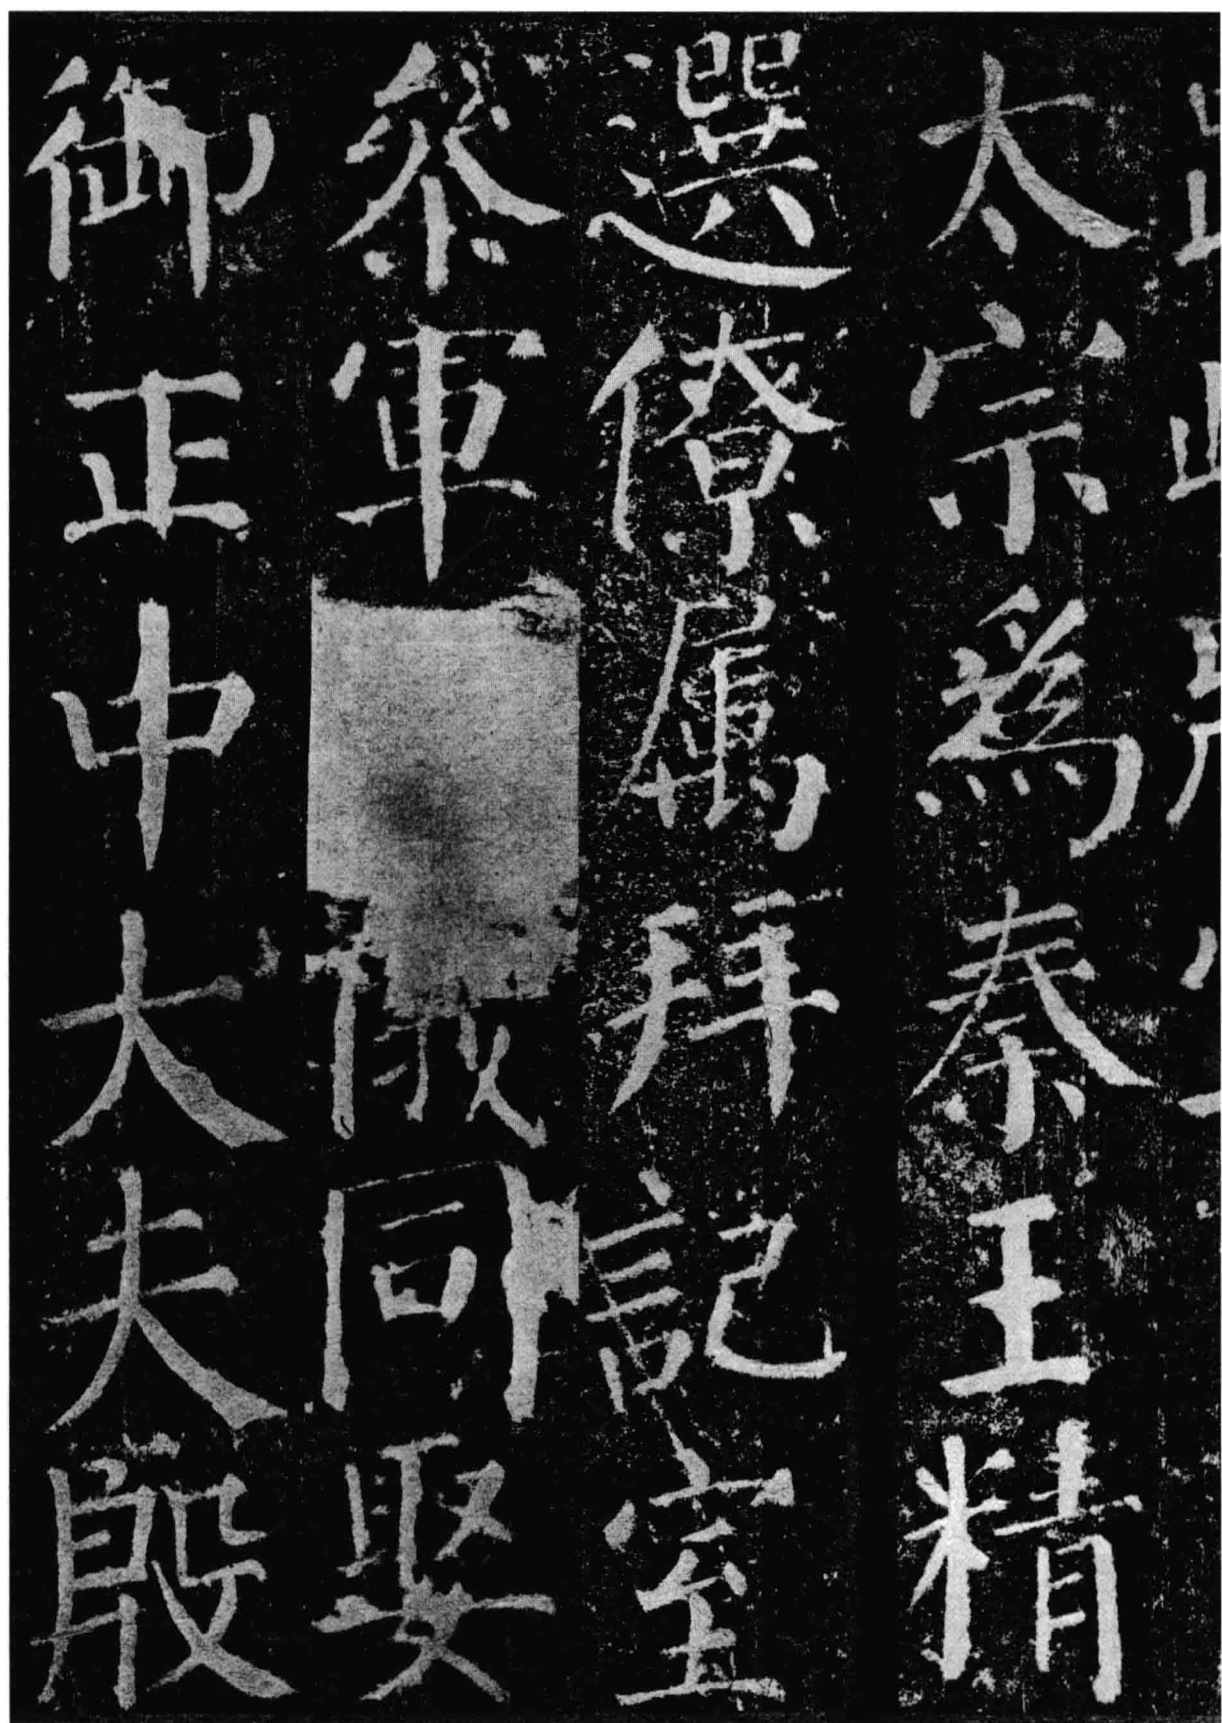 太宗為秦王精
選僚属拜記室
叅軍儀同娶
御正中大夫殷